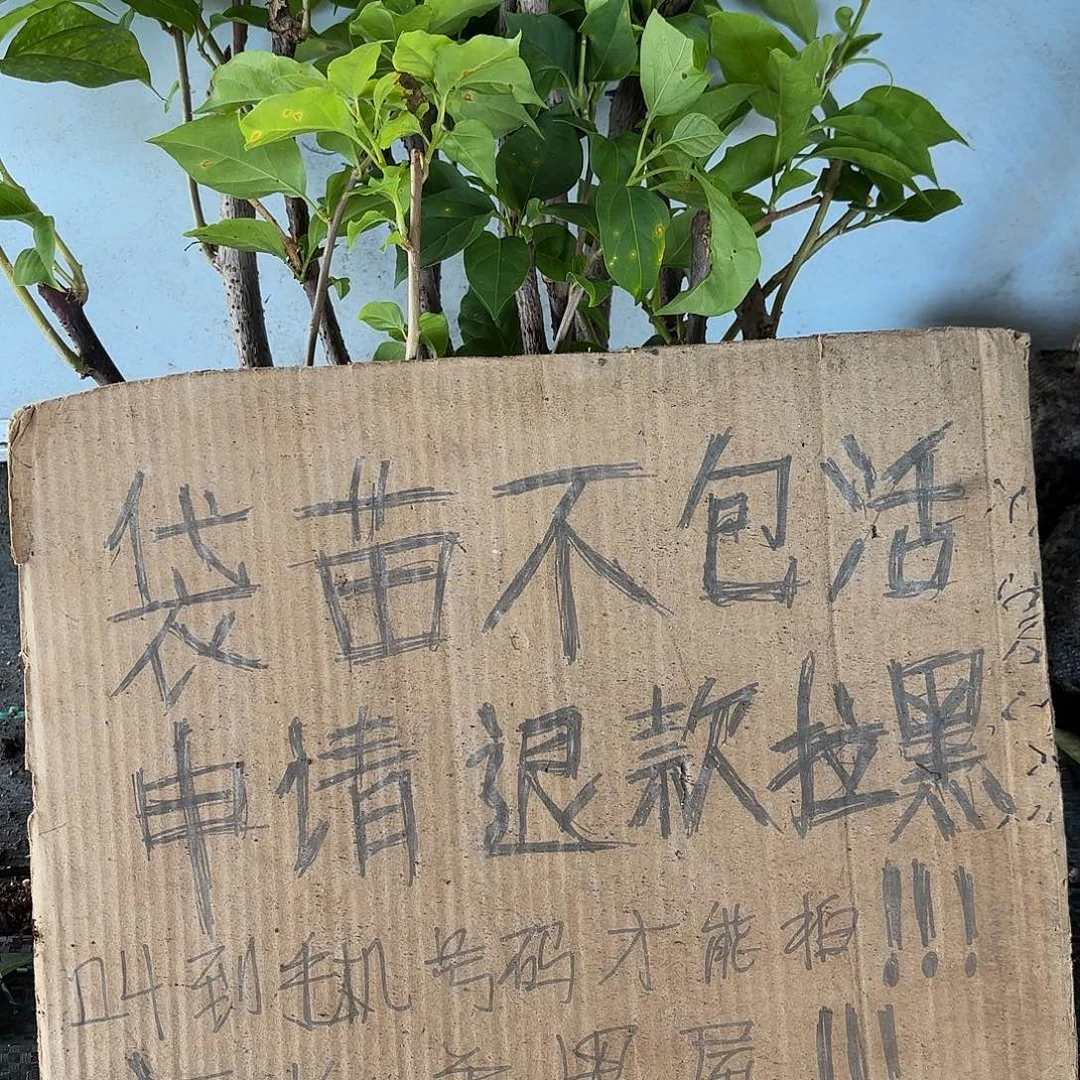 袋苗不包活
申请退款拉黑!!!
叫到手机号码才能拍